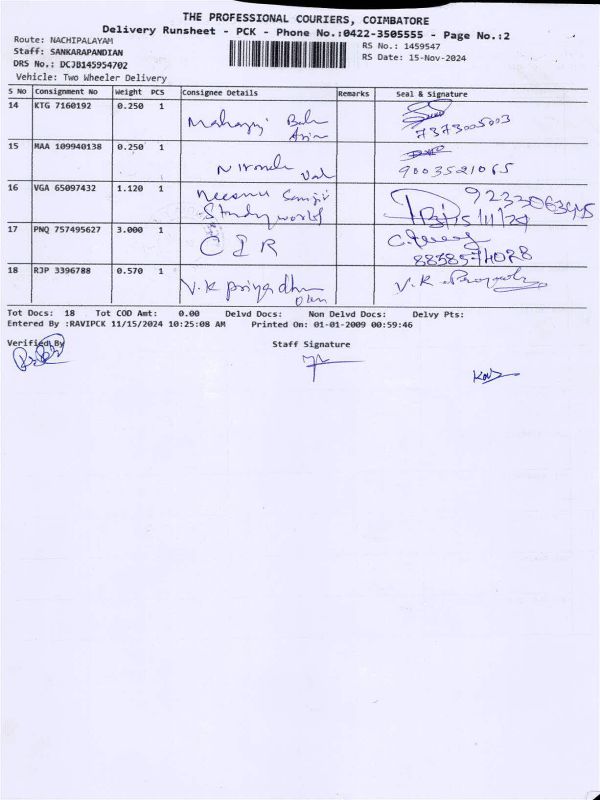 THE PROFESSIONAL COURIERS, COIMBATORE
Delivery Runsheet - PCK - Phone No.:0422-3505555 - Page No.:2
Route: NACHIPALAYAM
RS No.: 1459547
Staff: SANKARAPANDIAN
RS Date: 15-Nov-2024
DRS No.: DCJB145954702
Vehicle: Two Wheeler Delivery
S No Consignment No Weight PCS Consignee Details Remarks Seal & Signature
14 KTG 7160192 0.250 1
7373005003
15 MAA 109940138 0.250 1
9003521065
16 VGA 65097432 1.120 1
Study world
15/11/24
17 PNQ 757495627 3.000 1 CIR
8838574028
18 RJP 3396788 0.570 1 V.K
V.K
Tot Docs: 18 Tot COD Amt: 0.00 Delvd Docs: Non Delvd Docs: Delvy Pts:
Entered By :RAVIPCK 11/15/2024 10:25:08 AM Printed On: 01-01-2009 00:59:46
Verified By Staff Signature